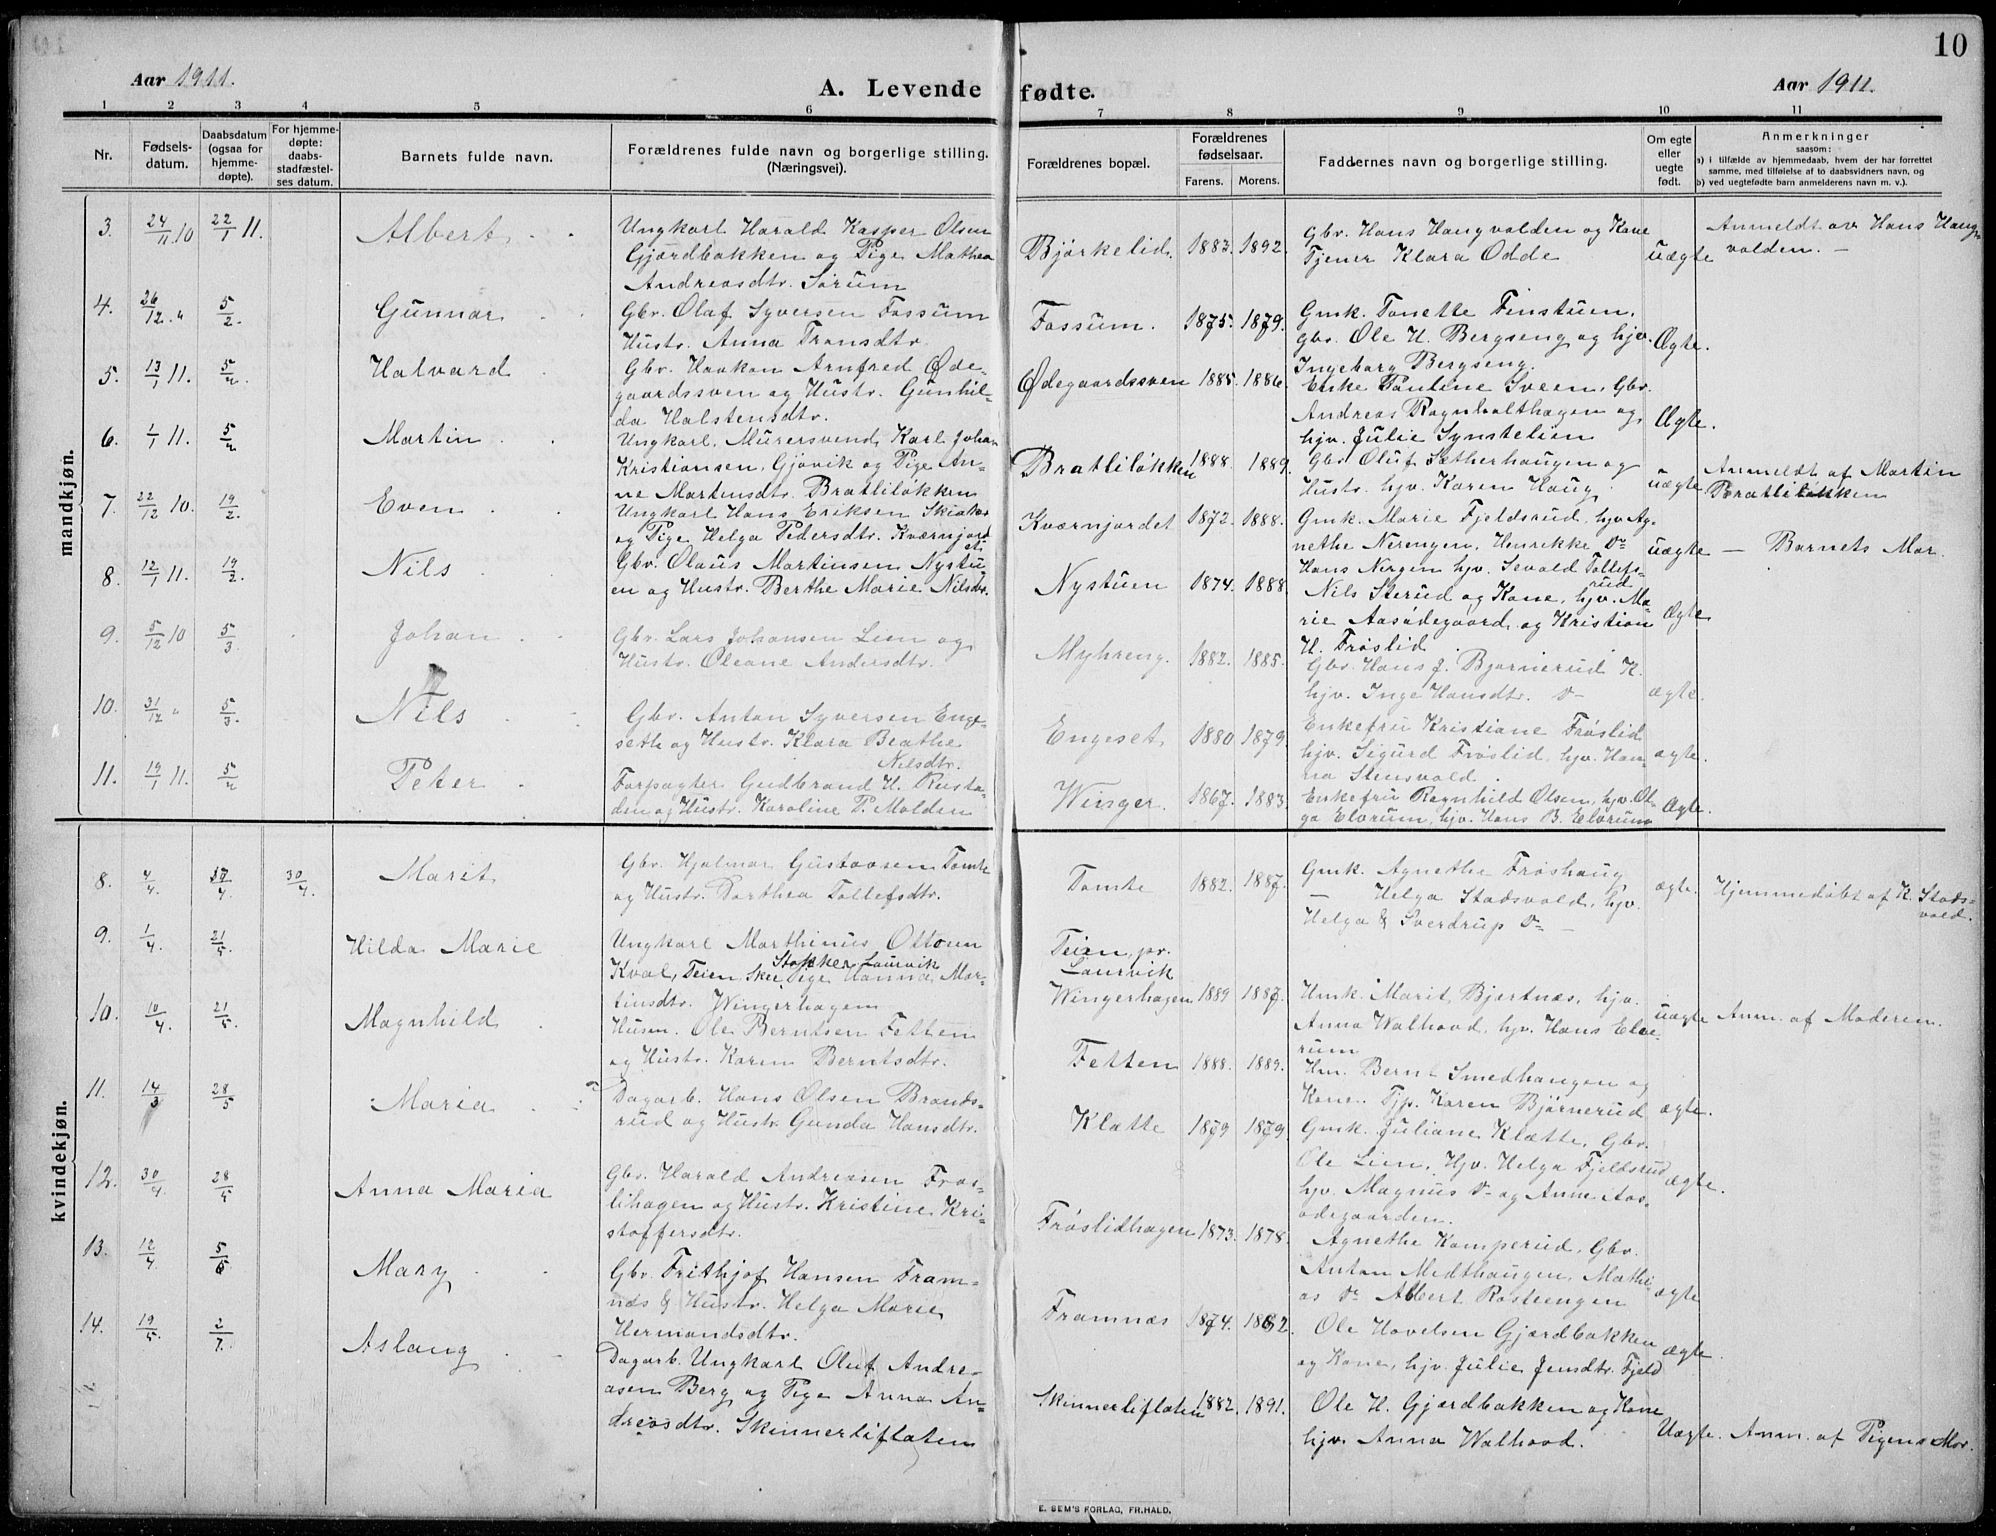 10
Aar 1911.
A. Levende fødte.
Aar 1911.
1 2 3 4 5 6 7 8 9 10 11
Nr.
Fødsels-
datum.
Daabsdatum
(ogsaa for
hjemme-
døpte).
For hjemme-
døpte:
daabs-
stadfæstel-
ses datum.
Barnets fulde navn.
Forældrenes fulde navn og borgerlige stilling.
(Næringsvei).
Forældrenes bopæl.
Forældrenes
fødselsaar.
Farens. Morens.
Faddernes navn og borgerlige stilling.
Om egte
eller
uegte
født.
Anmerkninger
saasom:
a) i tilfælde av hjemmedaab, hvem der har forrettet
samme, med tilføielse af to daabsvidners navn, og
b) ved uegtefødte barn anmelderens navn m. v.).
mandkjøn.
3. 24/11 10 22/1 11. Albert
Ungkarl Harald Kasper Olsen
Gjærdbakken og Pige Mathea
Andreasdtr. Sørum
Bjørkelid. 1883. 1892.
Gbr. Hans Haugvolden og Kone
Tjener Klara Odde
uægte
Anmeldt av Hans Haug-
volden. —
4. 26/12 " 5/2. Gunnar
Gbr. Olaf Syversen Fossum
Hustr. Anna Transdtr.
Fossum. 1875. 1879.
Gmk. Tonette Finstuen,
gbr. Ole H. Bergseng og hjv.
Ingeborg Bergseng.
Ægte.
5. 13/1 11. 5/2. Halvard
Gbr. Haakon Arnfred Øde-
gaardssven og Hustr. Gunhil-
da Halstensdtr.
Ødegaardssven 1885. 1886.
Enke Pauline Sveen, Gbr.
Andreas Ragnhalthagen og
hjv. Julie Synstelien
Ægte.
6. 1/1 11. 5/2 Martin
Ungkarl, Murersvend, Karl Johan
Kristiansen, Gjøvik og Pige An-
ne Martensdtr. Bratliløkken
Bratliløkken 1888. 1889.
Gbr. Oluf Sætherhaugen og
Hustr. hjv. Karen Haug.
uægte
Anmeldt af Martin
Bratliløkken
7. 22/12 10. 19/2. Even
Ungkarl Hans Eriksen Skiaker
og Pige Helga Pedersdtr. Kværnjord
et.
Kværnjordet 1872. 1888.
Gmk. Marie Fjeldsrud, hjv. Ag-
nethe Nerengen, Henrikke Do
Hans Nergen hjv. Sevald Tollefs-
rud
uægte — Barnets Mor.
8. 12/1 11. 19/2. Nils
Gbr. Olaus Martinsen Nystu-
en og Hustr. Berthe Marie Nilsdtr.
Nystuen 1874. 1888.
Nils Sterud og Kone, hjv. Ma-
rie Aasødegaard og Kristian
H. Frøslid
Ægte
9. 5/12 10 5/3 Johan
Gbr. Lars Johansen Lien og
Hustr. Oleane Andersdtr.
Myhreng. 1882. 1885.
Gbr. Hans J. Bjørnerud K.
hjv. Inge Hansdtr. Do
ægte.
10. 31/12 " 5/3. Nils
Gbr. Anton Syversen Enge-
seth og Hustr. Klara Beathe
Nilsdtr.
Engeset 1880 1879.
Enkefru Kristiane Frøslid
hjv. Sigurd Frøslid, hjv. Han-
na Stensvold.
ægte.
11. 19/1 11. 5/2 Peter
Forpagter Gudbrand H. Rusta-
den og Hustr. Karoline P. Molden
Winger. 1867. 1883.
Enkefru Ragnhild Olsen, hjv. Ol-
ga Elvrum, hjv. Hans B. Elvrum
Ægte.
kvindekjøn.
8. 4/4. 17/4. 30/4. Marit
Gbr. Hjalmar Gustavsen Tomte
og Hustr. Dorthea Tollefsdtr.
Tomte 1882. 1887.
Gmk. Agnethe Frøshaug
— Helga Stadsvold, hjv.
Helga & Sverdrup Do —
ægte.
Hjemmedøbt af K. Stads-
vold.
9. 1/4. 21/5. Hilda Marie
Ungkarl Marthinus Ottosen
Stokker Laurvik
Kval, Teien Skei, Pige Hanna Mar-
tinsdtr. Wingerhagen
Teien, pr.
Laurvik
Wingerhagen 1889 1887.
Umk. Marit Bjertnæs, hjv.
Anna Walhovd, hjv. Hans Elve-
rum
uægte Anm. af Moderen.
10. 10/4. 21/5. Magnhild
Husm. Ole Berntsen Fetten
og Hustr. Karen Berntsdtr.
Fetten 1888. 1889.
Hm. Bernt Smedhaugen og
Kone. Tjp. Karen Bjørnerud
ægte.
11. 14/3 28/5 Maria
Dagarb. Hans Olsen Brands-
rud og Hustr. Gunda Hansdtr.
Klætte 1879 1879.
Gmk. Juliane Klætte, Gbr.
Ole Lien, Hjv. Helga Fjeldsrud
hjv. Magnus Do og Anne Aas-
ødegaarden.
ægte.
12. 30/4. 28/5 Anna Maria
Gbr. Harald Andreasen Frøs-
lihagen og Hustr. Kristine Kri-
stoffersdtr.
Frøslidhagen 1873. 1878.
Agnethe Kamperud, Gbr.
Anton Midthaugen, Mathi-
as Do Albert Rosteengen
ægte
13. 12/4 5/6. Mary
Gbr. Frithjof Hansen Fram-
næs & Hustr. Helga Marie
Hermandsdtr.
Framnæs 1874. 1882.
Ole Hovelsen Gjærdbakken
og Kone, hjv. Julie Jensdtr. Fjeld
ægte.
14. 19/5. 2/7. Aslaug
Dagarb. Ungkarl Oluf Andre-
asen Berg og Pige Anna An-
dreasdtr. Skinnerliflaten
Skinnerliflaten 1882. 1891.
Ole H. Gjærdbakken og Kone
hjv. Anna Walhovd.
Uægte. Anm. af Pigens Mor.
E. SEM'S FORLAG, FR.HALD.